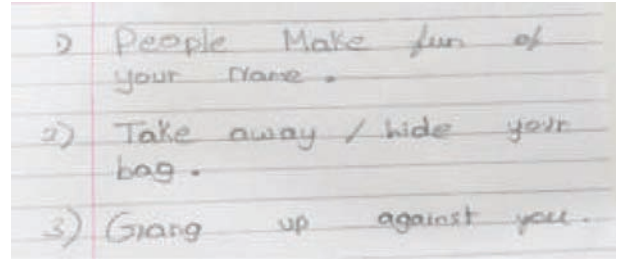 1) People Make fun of
your Name.
2) Take away / hide your
bag.
3) Gang up against you.